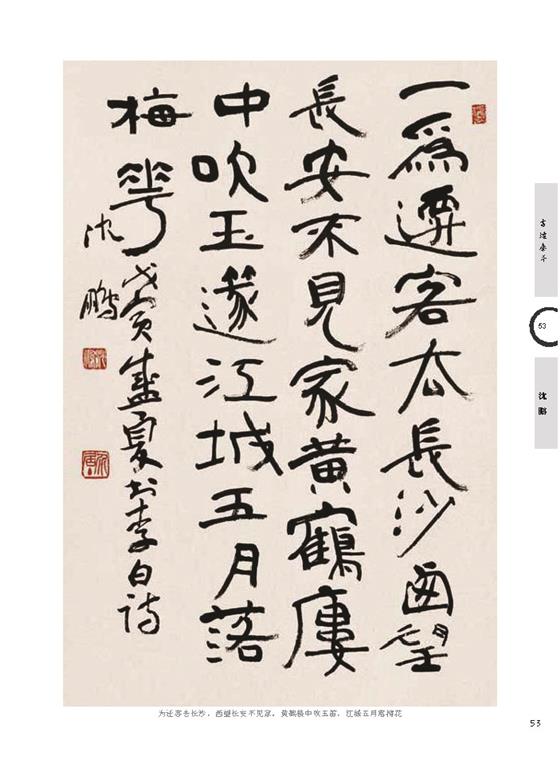 一爲遷客去長沙西望
長安不見家黄鶴廔
中吹玉篴江城五月落
梅花戊寅盛夏书李白诗
沈鹏
53
沈鹏
为迁客去长沙，西望长安不见家。黄鹤楼中吹玉笛，江城五月落梅花
53